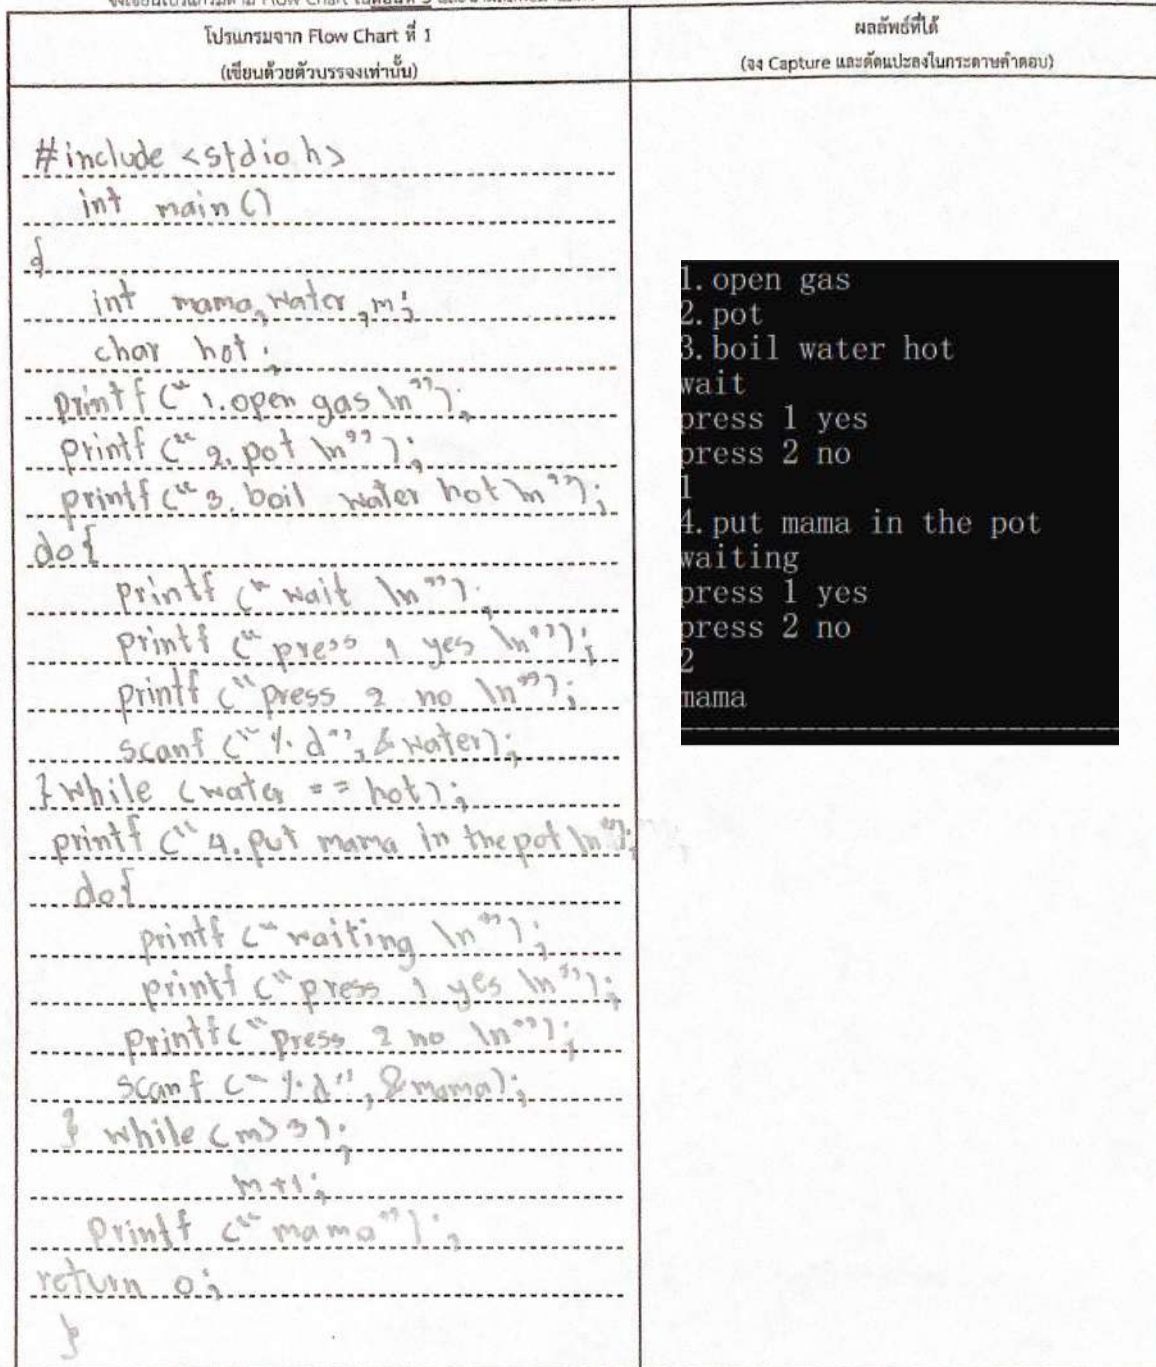 โปรแกรมจาก Flow Chart ที่ 1
(เขียนด้วยตัวบรรจงเท่านั้น)
#include <stdio.h>
int main()
{
int mama, water, m;
char hot;
printf (" 1.open gas \n");
printf (" 2. pot \n");
printf (" 3. boil water hot \n");
do{
printf (" wait \n");
printf (" press 1 yes \n");
printf (" press 2 no \n");
scanf (" %d", & water);
} while (water == hot);
printf (" 4. put mama in the pot \n");
do{
printf (" waiting \n");
printf (" press 1 yes \n");
printf (" press 2 no \n");
scanf (" %d", &mama);
} while (m>3);
m+1;
printf (" mama");
return 0;
}
ผลลัพธ์ที่ได้
(จง Capture และตัดแปะลงในกระดาษคำตอบ)
1.open gas
2.pot
3.boil water hot
wait
press 1 yes
press 2 no
1
4.put mama in the pot
waiting
press 1 yes
press 2 no
2
mama